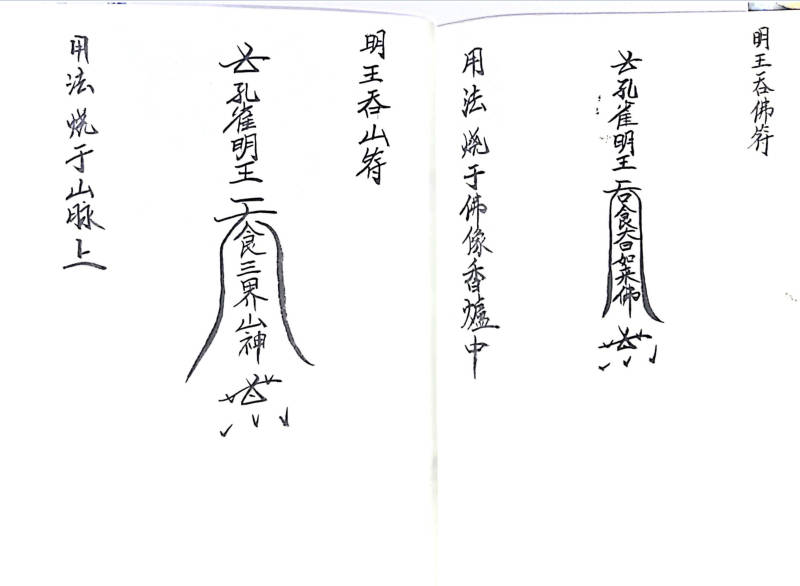 明王吞佛符
孔雀明王
吞食
如来佛
用法 烧于佛像香爐中
明王吞山符
孔雀明王
食三界山神
用法 烧于山脉上